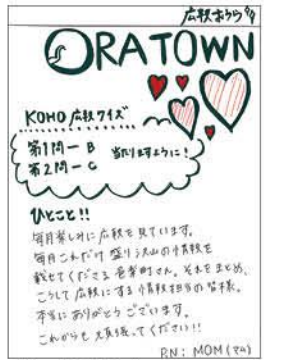 広報おうら
ORATOWN
KOHO 広報クイズ
第1問ー B
第2問ー C
当たりますように!
ひとこと!!
毎月楽しみに広報を見ています。
毎月これだけ盛り沢山の情報を
載せてくださる邑楽町さん。それをまとめ、
こうして広報にする情報担当の皆様。
本当にありがとうございます。
これからも頑張ってください!!
P.N: MOM(マム)